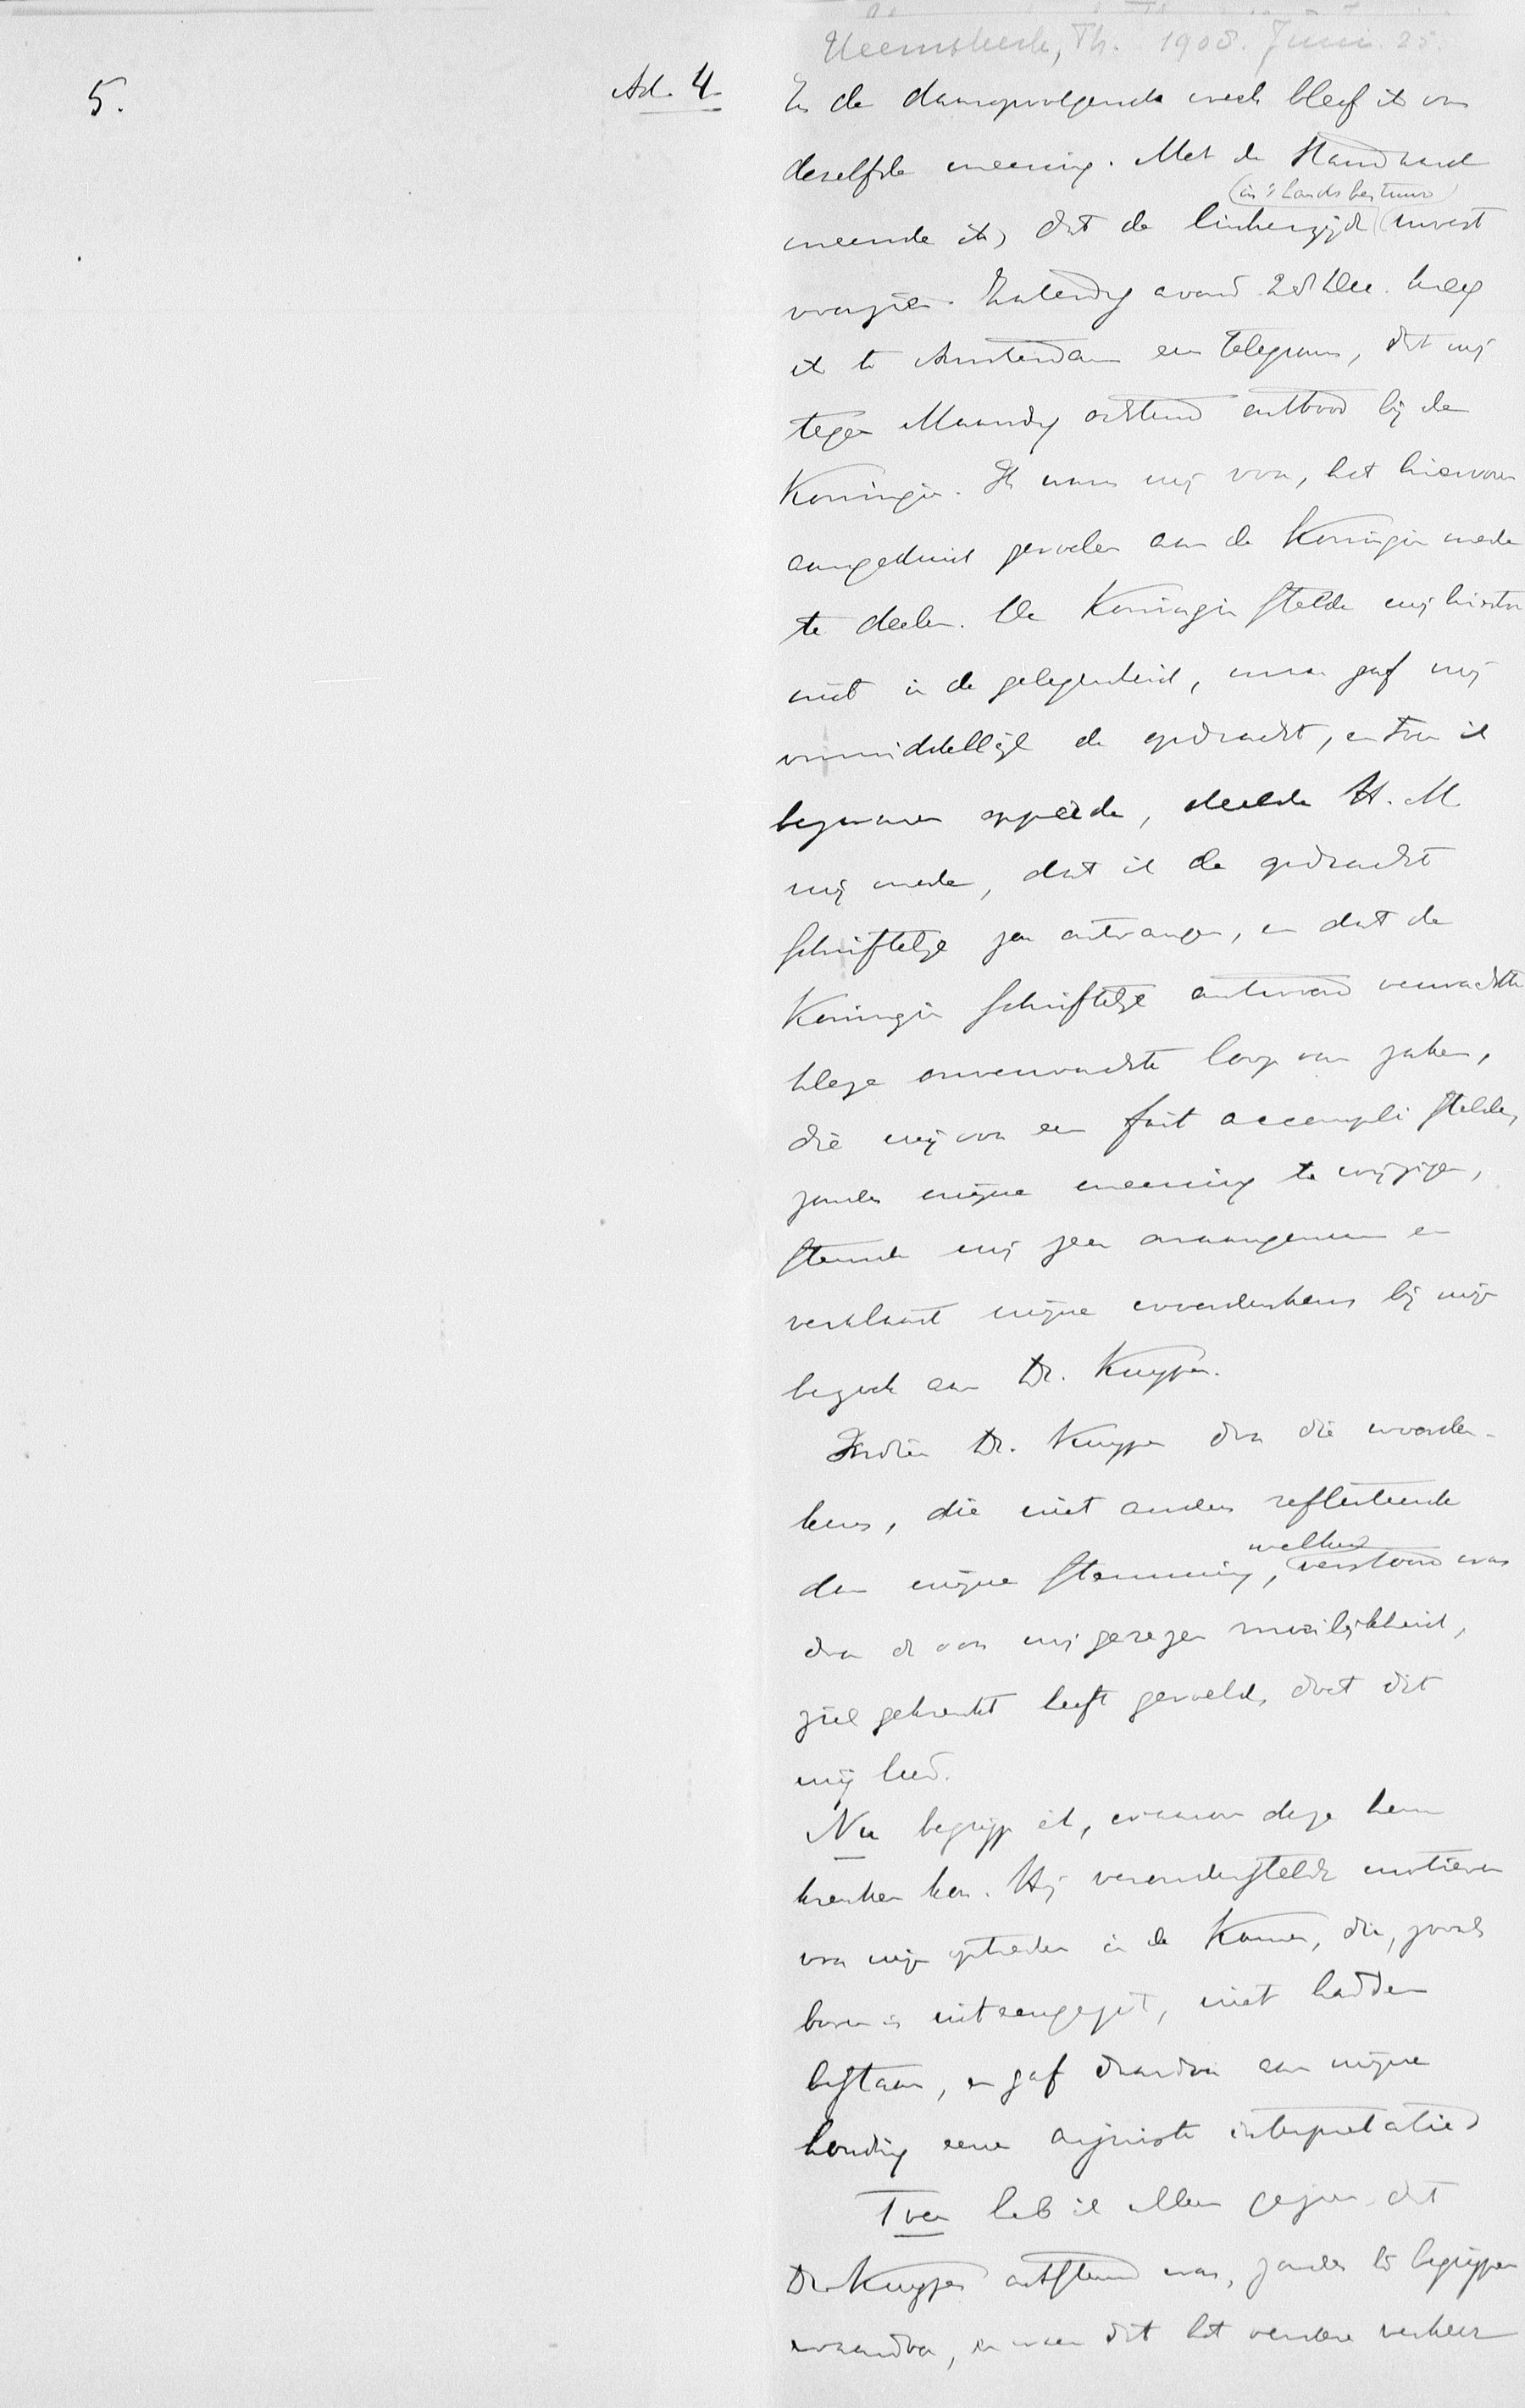 Heemskerk, Th. 1908. Juni 25.
5.
Ad. 4
In de daaropvolgende week bleef ik van
dezelfde meening. Met de Standaard
(in 's Lands bestuur)
meende ik, dat de linkerzijde moest
voorzien. Zaterdag avond 28 Dec. kreeg
ik te Amsterdam een telegram, dat mij
tegen Maandag ochtend ontbood bij de
Koningin. Ik nam mij voor, het hiervoren
aangeduid gevoelen aan de Koningin mede
te deelen. De Koningin stelde mij hiertoe
niet in de gelegenheid, maar gaf mij
onmiddellijk de opdracht, en toen ik
bezwaren opperde, deelde H.M.
mij mede, dat ik de opdracht
schriftelijk zou ontvangen, en dat de
Koningin schriftelijk antwoord verwachtte
Deze onverwachte loop van zaken,
die mij voor een fait accompli stelde,
zonder mijne meening te wijzigen,
stemde mij zeer onaangenaam en
verklaart mijne woordenkeus bij mijn
bezoek aan Dr. Kuyper.
Indien Dr. Kuyper door die woorden-
keus, die niet anders reflecteerde
welke
dan mijne stemming, verstoord was
door de voor mij gerezen moeilijkheid,
zich gekrenkt heeft gevoeld, doet dit
mij leed.
Nu begrijp ik, waarom deze hem
krenken kon. Hij veronderstelde motieven
voor mijn optreden in de Kamer, die, zooals
boven is uiteengezet, niet hadden
bestaan, en gaf daardoor aan mijne
houding eene onjuiste interpretatie
Toen heb ik alleen gezien dat
Dr. Kuyper ontstemd was, zonder te begrijpen
waardoor, en waar dit het verdere verkeer